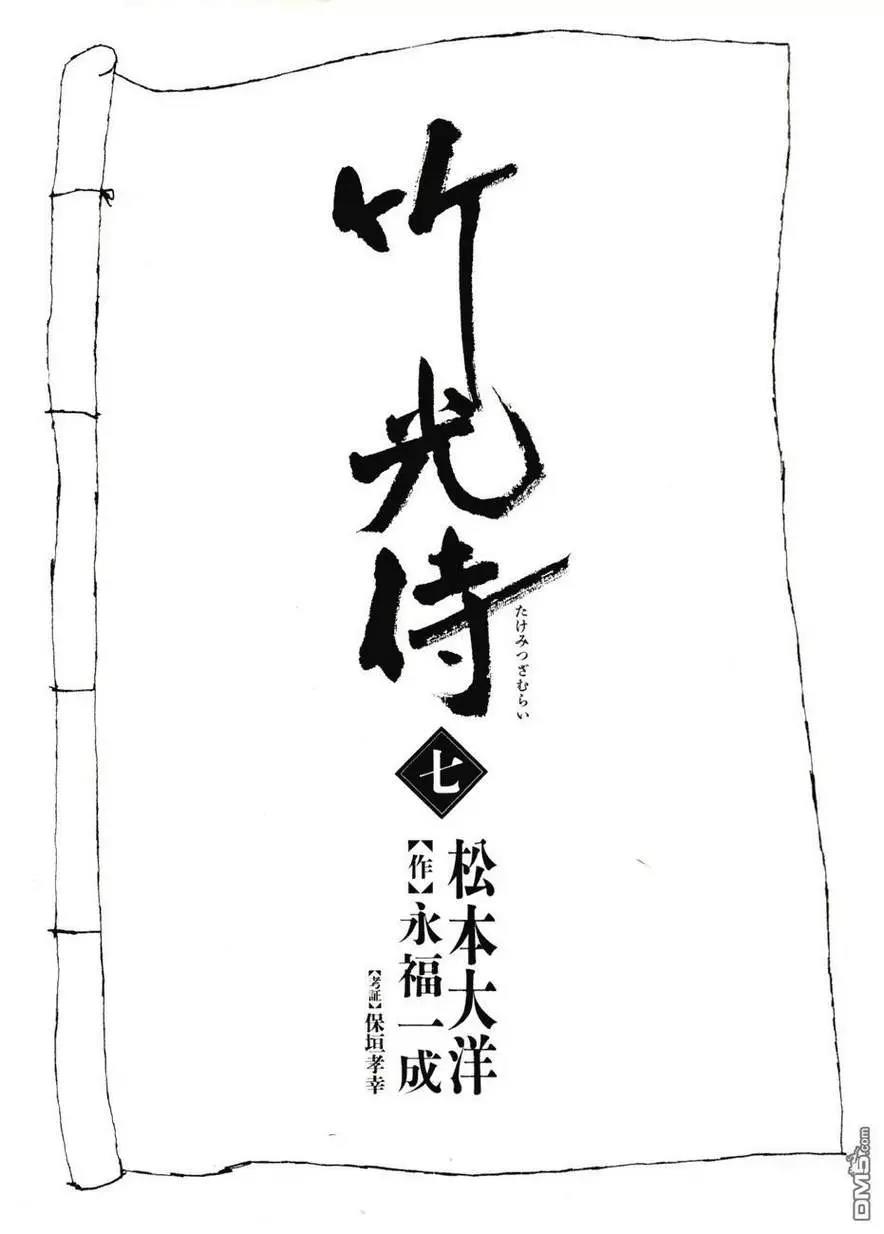 竹光侍
たけみつざむらい
七
松本大洋
【作】永福一成
【考証】保垣孝幸
DM5.com